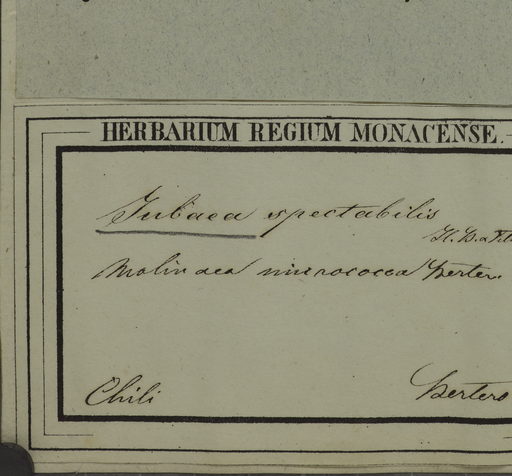 HERBARIUM REGIUM MONACENSE.
Jubaea spectabilis
H. B. &
Molinaea micrococca Berter.
Chili
Bertero